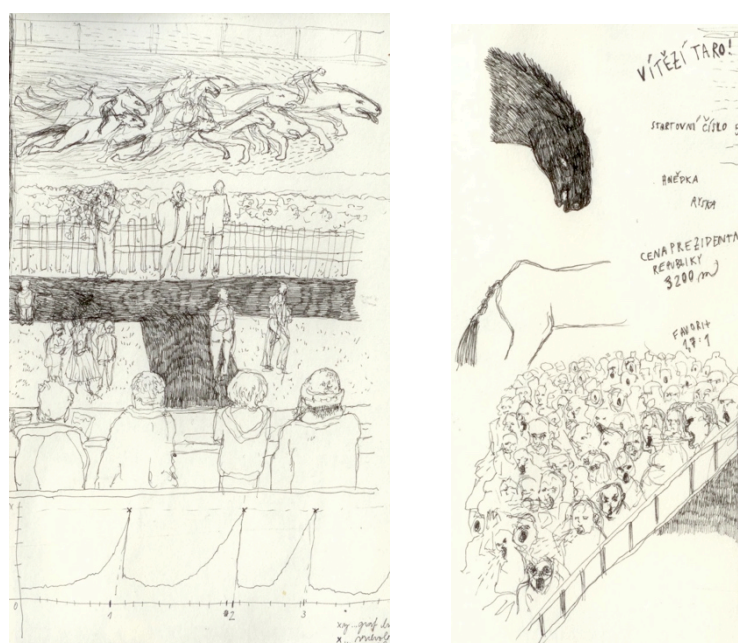 0 1 2 3
x
VÍTĚZÍ TARO!
STARTOVNÍ ČÍSLO
HNĚDKA
RYSKA
CENA PREZIDENTA
REPUBLIKY
3200 m
FAVORIT
17:1